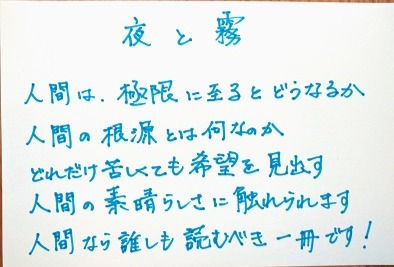 夜と霧
人間は、極限に至るとどうなるか
人間の根源とは何なのか
どれだけ苦しくても希望を見出す
人間の素晴らしさに触れられます
人間なら誰しも読むべき一冊です!